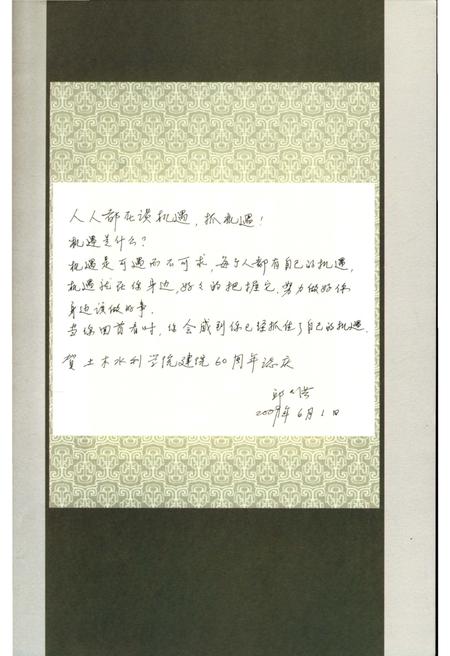 人人都在谈机遇，抓机遇！
机遇是什么？
机遇是可遇而不可求，每个人都有自己的机遇，
机遇就在你身边，好好的把握它，努力做好你
身边该做的事。
当你回首看时，你会感到你已经抓住了自己的机遇。
贺土木水利学院建院60周年志庆
邱
2009年6月1日